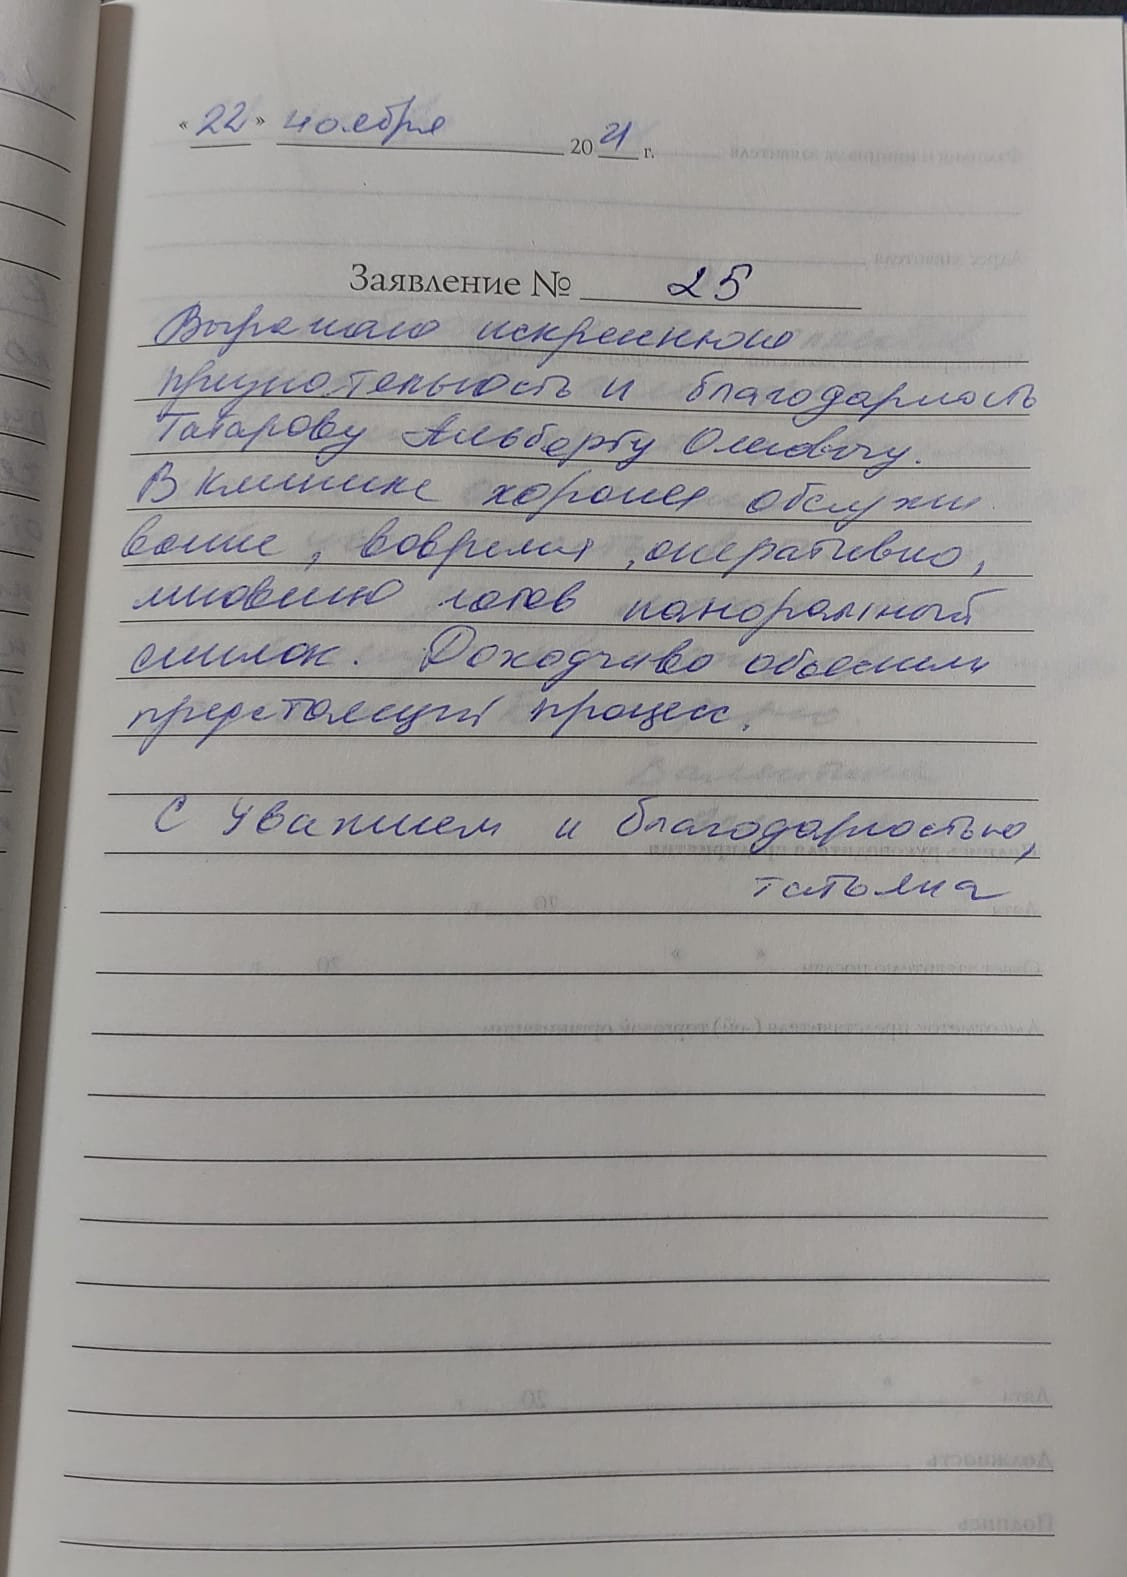 «22» ноября 2021 г.
Заявление № 25
Выражаю искреннюю
признательность и благодарность
Татарову Альберту Олеговичу.
В клинике хорошее обслужи
вание, вовремя, оперативно,
мгновенно готов панорамный
снимок. Доходчиво объяснили
предстоящий процесс.
С уважением и благодарностью,
Татьяна